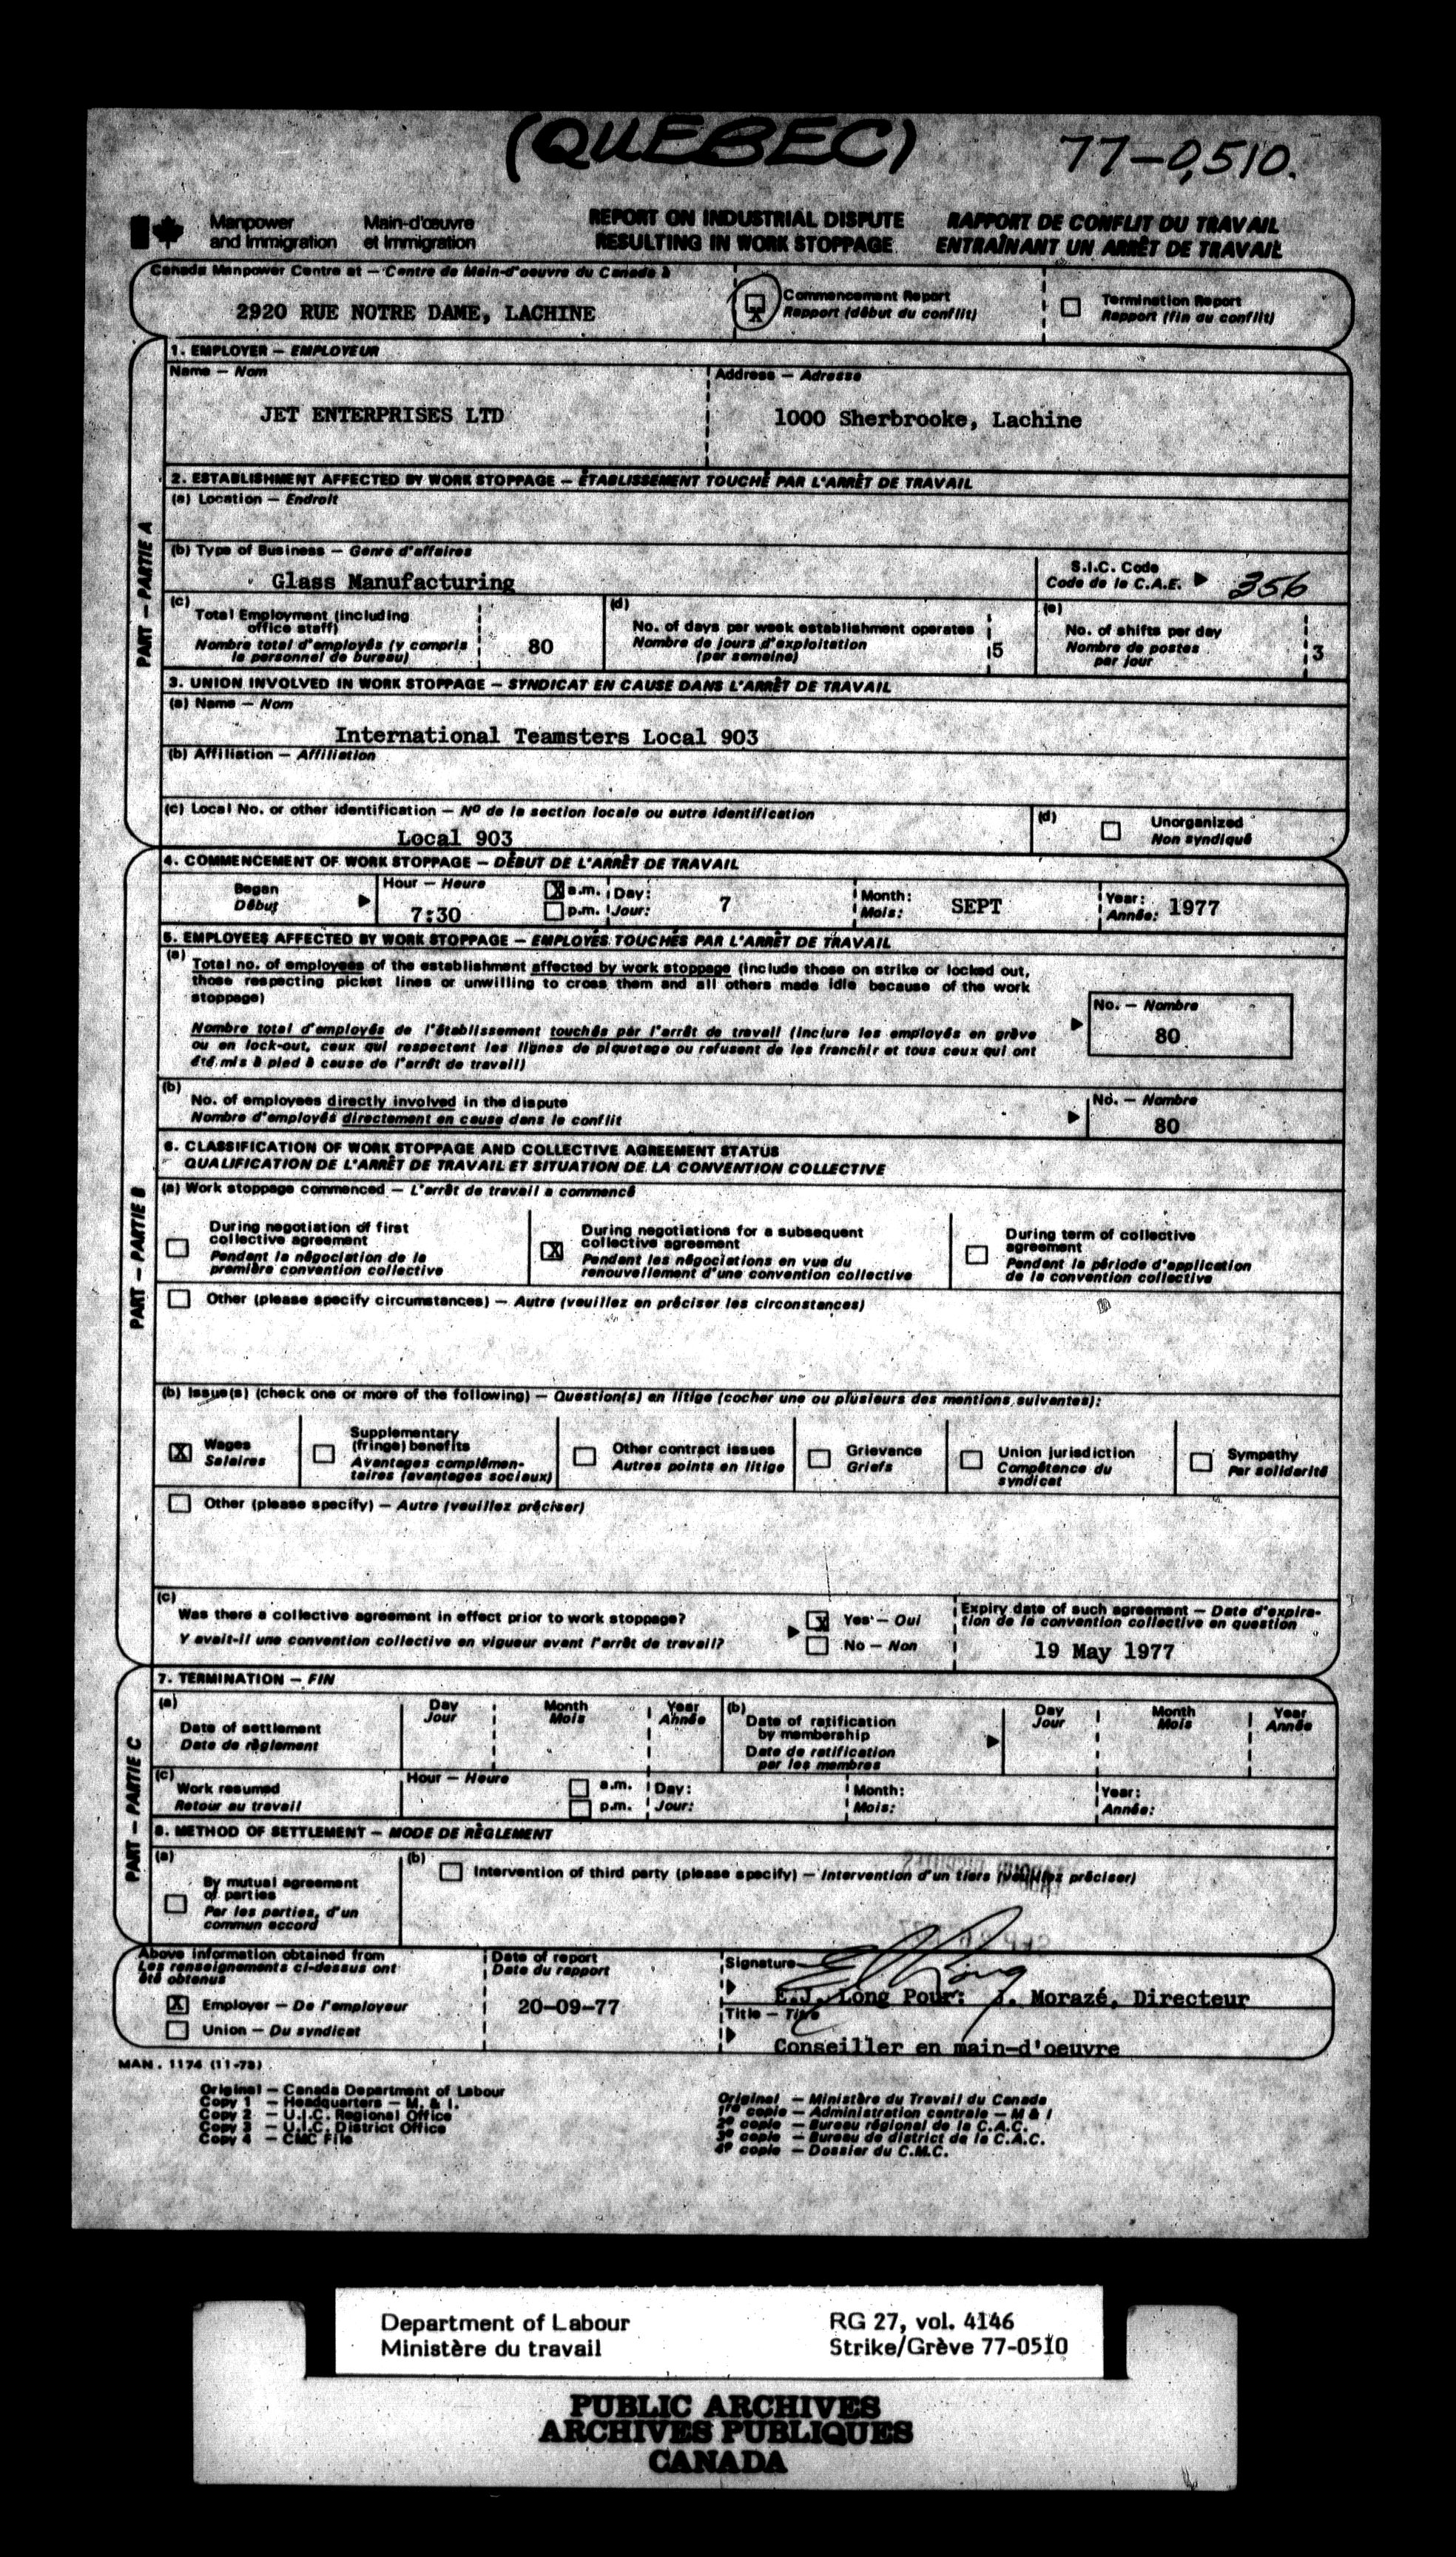 (QUEBEC)
77-0,510.
Manpower and Immigration
Main-d'œuvre et Immigration
REPORT ON INDUSTRIAL DISPUTE
RESULTING IN WORK STOPPAGE
RAPPORT DE CONFLIT DU TRAVAIL
ENTRAÎNANT UN ARRÊT DE TRAVAIL
Canada Manpower Centre at — Centre de Main-d'oeuvre du Canada à
2920 RUE NOTRE DAME, LACHINE
X
Commencement Report
Rapport (début du conflit)
Termination Report
Rapport (fin du conflit)
PART — PARTIE A
1. EMPLOYER — EMPLOYEUR
Name — Nom
JET ENTERPRISES LTD
Address — Adresse
1000 Sherbrooke, Lachine
2. ESTABLISHMENT AFFECTED BY WORK STOPPAGE — ÉTABLISSEMENT TOUCHÉ PAR L'ARRÊT DE TRAVAIL
(a) Location — Endroit
(b) Type of Business — Genre d'affaires
Glass Manufacturing
S.I.C. Code
Code de la C.A.E.
356
(c)
Total Employment (including
office staff)
Nombre total d'employés (y compris
le personnel de bureau)
80
(d)
No. of days per week establishment operates
Nombre de jours d'exploitation
(par semaine)
5
(e)
No. of shifts per day
Nombre de postes
par jour
3
3. UNION INVOLVED IN WORK STOPPAGE — SYNDICAT EN CAUSE DANS L'ARRÊT DE TRAVAIL
(a) Name — Nom
International Teamsters Local 903
(b) Affiliation — Affiliation
(c) Local No. or other identification — Nº de la section locale ou autre identification
Local 903
(d)
Unorganized
Non syndiqué
PART — PARTIE B
4. COMMENCEMENT OF WORK STOPPAGE — DÉBUT DE L'ARRÊT DE TRAVAIL
Began
Début
Hour — Heure
7:30
X a.m.
p.m.
Day:
Jour:
7
Month:
Mois:
SEPT
Year:
Année:
1977
5. EMPLOYEES AFFECTED BY WORK STOPPAGE — EMPLOYÉS TOUCHÉS PAR L'ARRÊT DE TRAVAIL
(a)
Total no. of employees of the establishment affected by work stoppage (include those on strike or locked out,
those respecting picket lines or unwilling to cross them and all others made idle because of the work
stoppage)
Nombre total d'employés de l'établissement touchés par l'arrêt de travail (inclure les employés en grève
ou en lock-out, ceux qui respectent les lignes de piquetage ou refusent de les franchir et tous ceux qui ont
été mis à pied à cause de l'arrêt de travail)
No. — Nombre
80
(b)
No. of employees directly involved in the dispute
Nombre d'employés directement en cause dans le conflit
No. — Nombre
80
6. CLASSIFICATION OF WORK STOPPAGE AND COLLECTIVE AGREEMENT STATUS
QUALIFICATION DE L'ARRÊT DE TRAVAIL ET SITUATION DE LA CONVENTION COLLECTIVE
(a) Work stoppage commenced — L'arrêt de travail a commencé
During negotiation of first
collective agreement
Pendant la négociation de la
première convention collective
X
During negotiations for a subsequent
collective agreement
Pendant les négociations en vue du
renouvellement d'une convention collective
During term of collective
agreement
Pendant la période d'application
de la convention collective
Other (please specify circumstances) — Autre (veuillez en préciser les circonstances)
(b) Issue(s) (check one or more of the following) — Question(s) en litige (cocher une ou plusieurs des mentions suivantes):
X
Wages
Salaires
Supplementary
(fringe) benefits
Avantages complémen-
taires (avantages sociaux)
Other contract issues
Autres points en litige
Grievance
Griefs
Union jurisdiction
Compétence du
syndicat
Sympathy
Par solidarité
Other (please specify) — Autre (veuillez préciser)
(c)
Was there a collective agreement in effect prior to work stoppage?
Y avait-il une convention collective en vigueur avant l'arrêt de travail?
X Yes — Oui
No — Non
Expiry date of such agreement — Date d'expira-
tion de la convention collective en question
19 May 1977
PART — PARTIE C
7. TERMINATION — FIN
(a)
Date of settlement
Date de règlement
Day
Jour
Month
Mois
Year
Année
(b)
Date of ratification
by membership
Date de ratification
par les membres
Day
Jour
Month
Mois
Year
Année
(c)
Work resumed
Retour au travail
Hour — Heure
a.m.
p.m.
Day:
Jour:
Month:
Mois:
Year:
Année:
8. METHOD OF SETTLEMENT — MODE DE RÈGLEMENT
(a)
By mutual agreement
of parties
Par les parties, d'un
commun accord
(b)
Intervention of third party (please specify) — Intervention d'un tiers (veuillez préciser)
Above information obtained from
Les renseignements ci-dessus ont
été obtenus
X Employer — De l'employeur
Union — Du syndicat
Date of report
Date du rapport
20-09-77
Signature
E.J. Long Pour: J. Morazé, Directeur
Title — Titre
Conseiller en main-d'oeuvre
MAN. 1174 (11-73)
Original — Canada Department of Labour
Copy 1 — Headquarters — M. & I.
Copy 2 — U.I.C. Regional Office
Copy 3 — U.I.C. District Office
Copy 4 — CMC File
Original — Ministère du Travail du Canada
1re copie — Administration centrale — M & I
2e copie — Bureau régional de la C.A.C.
3e copie — Bureau de district de la C.A.C.
4e copie — Dossier du C.M.C.
Department of Labour
Ministère du travail
RG 27, vol. 4146
Strike/Grève 77-0510
PUBLIC ARCHIVES
ARCHIVES PUBLIQUES
CANADA